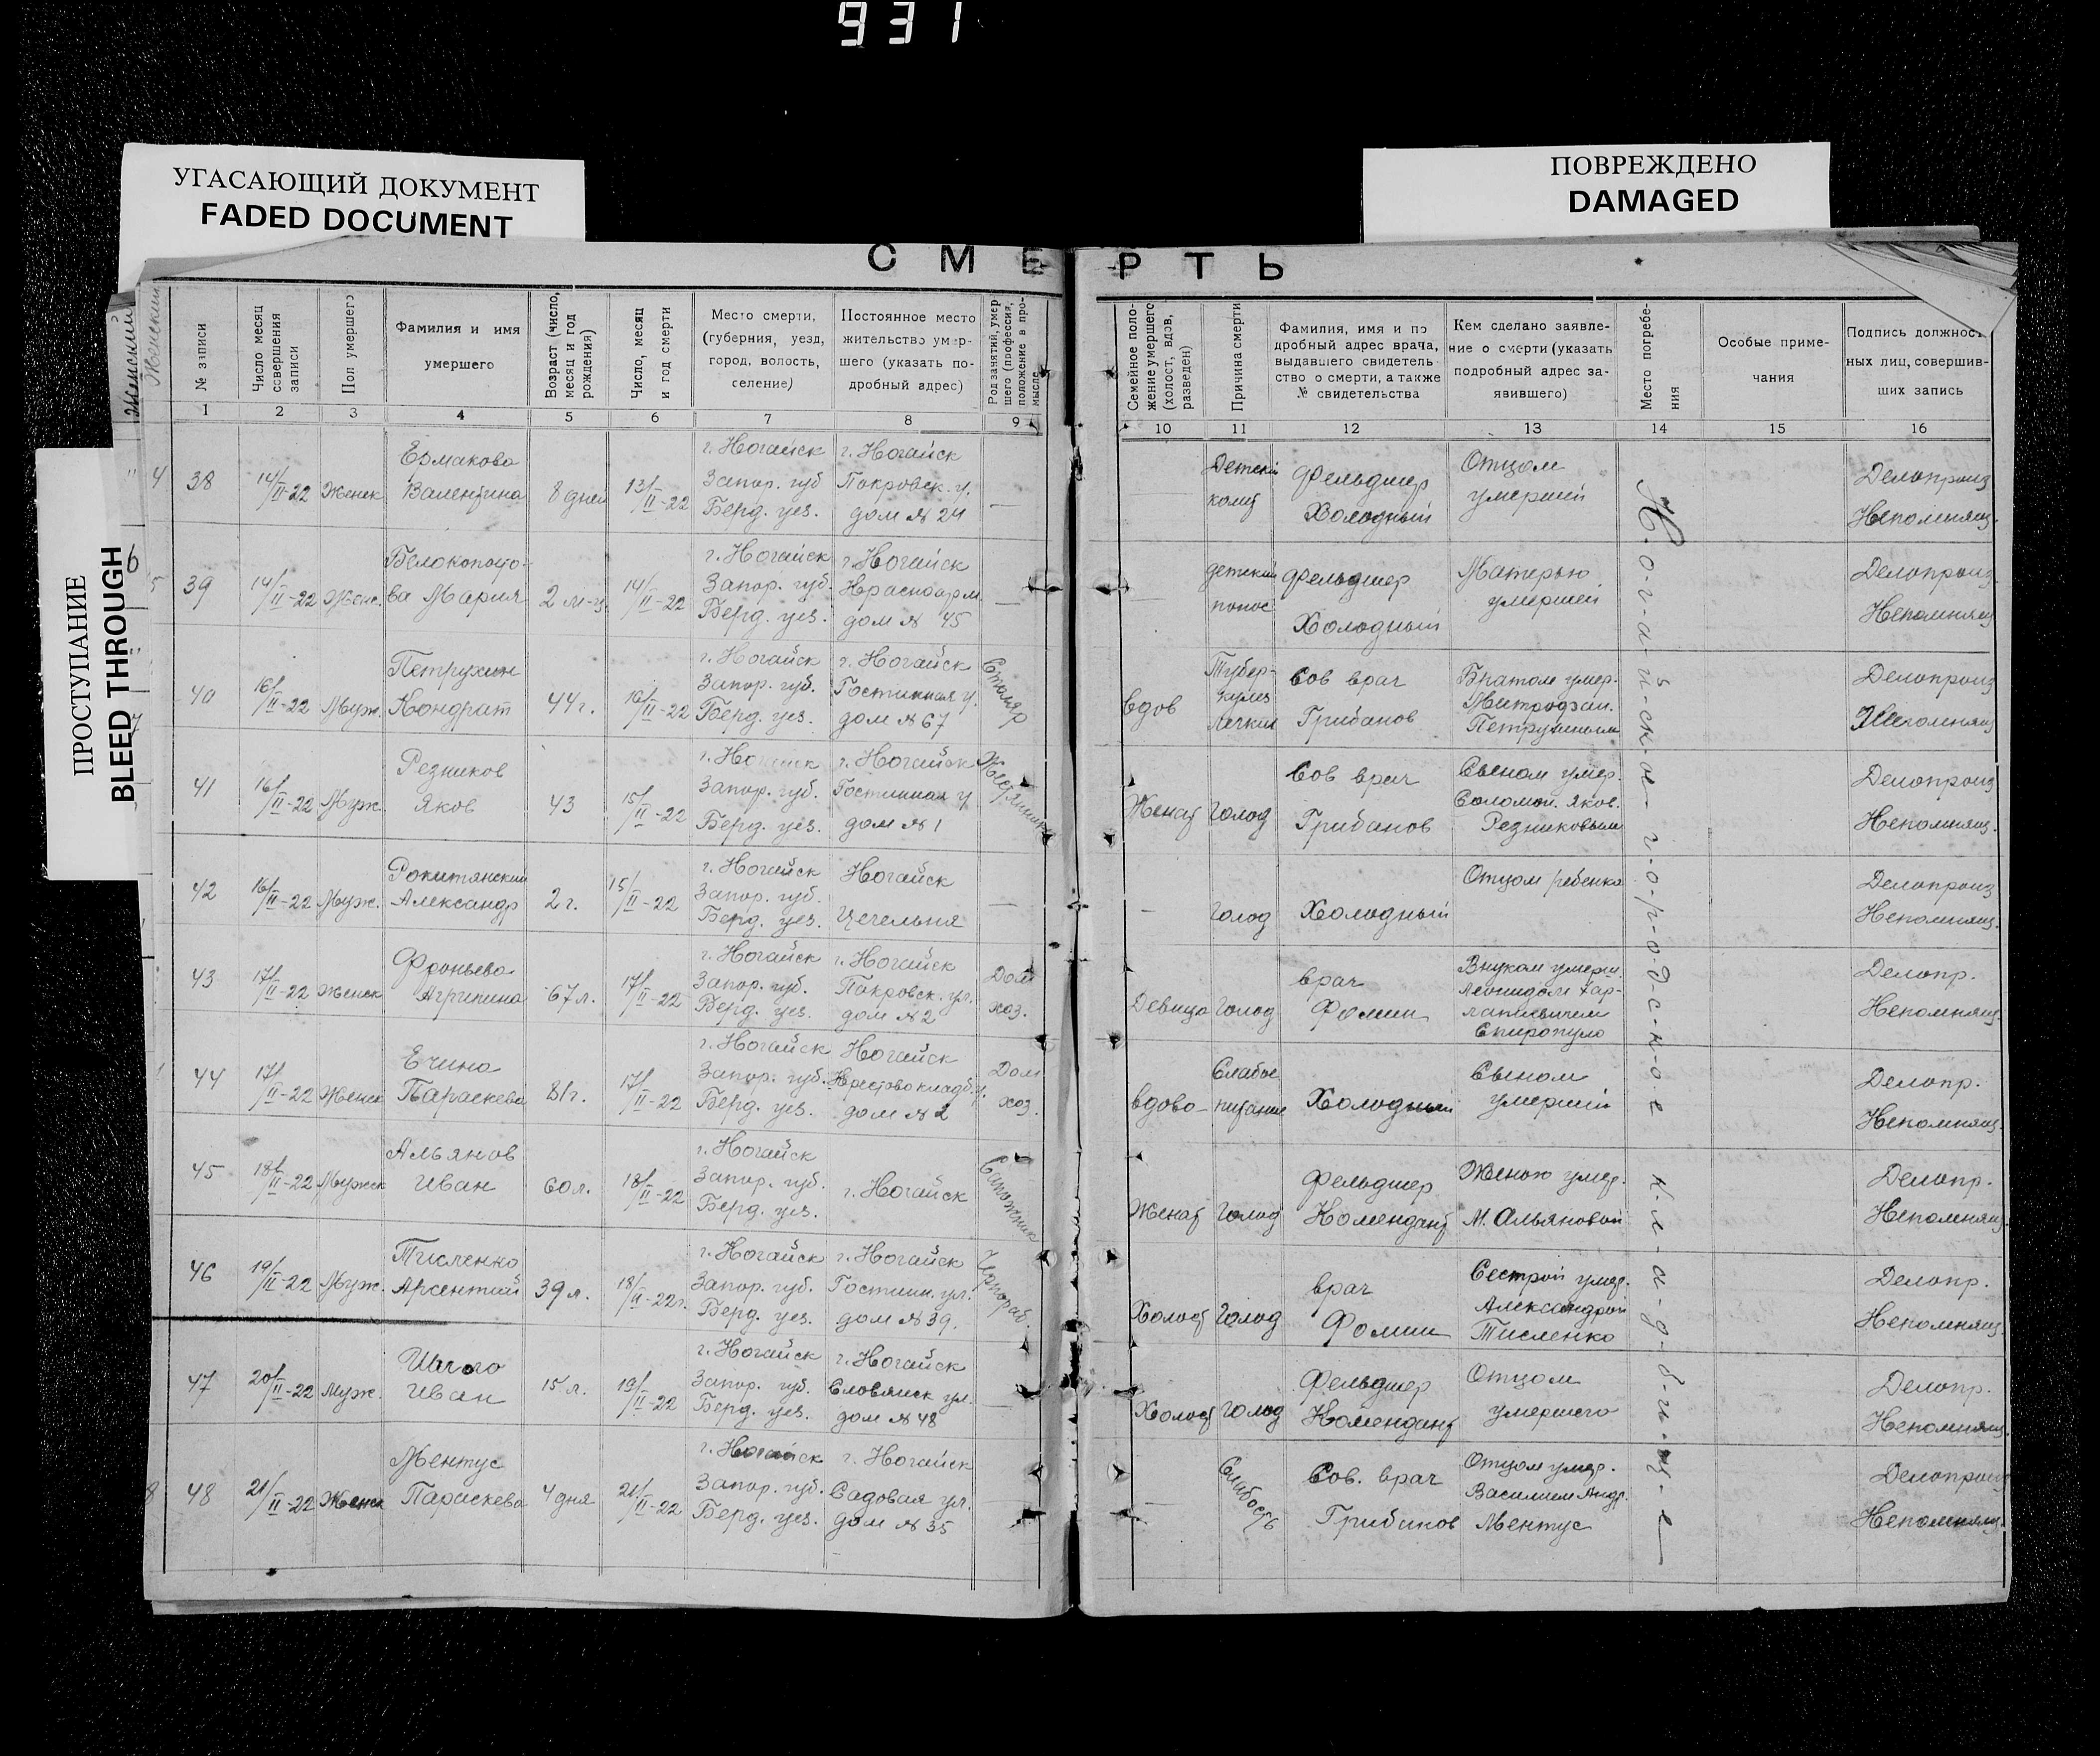 931
УГАСАЮЩИЙ ДОКУМЕНТ
FADED DOCUMENT
ПОВРЕЖДЕНО
DAMAGED
ПРОСТУПАНИЕ
BLEED THROUGH
СМЕРТЬ
№ записи
Число месяц совершения записи
Пол умершего
Фамилия и имя умершего
Возраст (число, месяц и год рождения)
Число, месяц и год смерти
Место смерти, (губерния, уезд, город, волость, селение)
Постоянное место жительство умершего (указать подробный адрес)
Род занятий, умершего (профессия, положение в промысле
Семейное положение умершего (холост, вдов, разведен)
Причина смерти
Фамилия, имя и подробный адрес врача, выдавшего свидетельство о смерти, а также № свидетельства
Кем сделано заявление о смерти (указать подробный адрес заявившего)
Место погребения
Особые примечания
Подпись должност ных лиц, совершивших запись
1 2 3 4 5 6 7 8 9 10 11 12 13 14 15 16
38 14/II-22 Женск Ермакова Валентина 8 дней 13/II-22 г. Ногайск Запор. губ Берд. уез. г. Ногайск Покровск. у. дом № 24 —
Фельдшер Холодный Отцом умершей Делопроиз Непомнящ.
39 14/II-22 Женс. ва Мария 2 м-ц 14/II-22 г. Ногайск Запор. губ. Берд. уез. г. Ногайск дом № 45 —
— детский понос Фельдшер Холодный Матерью умершей Делопроиз Непомнящ
40 16/II-22 Муж. Петрухин Кондрат 44 г. 16/II-22 г. Ногайск Запор. губ. Берд. уез. г. Ногайск Гостинная у. дом № 67 Столяр
вдов Сов врач Грибанов Братом умер. Делопроиз Непомнящ
41 16/II-22 Муж. Резников Яков 43 15/II-22 г. Ногайск Запор. губ. Берд. уез. г. Ногайск Гостинная у дом № 1
Женат голод Сов врач Грибанов Сыном умер. Соломон. Яков. Резниковым Делопроиз Непомнящ.
42 16/II-22 Муж. Рокитянский Александр 2 г. 15/II-22 г. Ногайск Запор. губ. Берд. уез. Ногайск —
— голод Холодный Отцом ребенка Делопроиз Непомнящ.
43 17/II-22 Женск Агрипина 67 л. 17/II-22 г. Ногайск Запор. губ. Берд. уез. г. Ногайск Покровск. ул. дом № 2 Дом хоз.
Девица голод врач Фомин Внуком умерш. Леонидом Хар- Спиропуло Делопр. Непомнящ.
44 17/II-22 Женск Ечина Параскева 81 г. 17/II-22 г. Ногайск Запор. губ. Берд. уез. Ногайск дом № 2 Дом хоз.
вдова Слабое питание Холодный Сыном умершей Делопр. Непомнящ.
45 18/II-22 Мужск Альянов Иван 60 л. 18/II-22 г. Ногайск Запор. губ. Берд. уез. г. Ногайск Сапожник
Женат голод Фельдшер Комендант Женою умер. М. Альяновой Делопр. Непомнящ.
46 19/II-22 Муж. Тисленко Арсентий 39 л. 18/II-22 г. г. Ногайск Запор. губ. Берд. уез. г. Ногайск Гостинн. ул. дом № 39. Чернораб.
Холост голод врач Фомин Сестрой умер. Александрой Тисленко Делопр. Непомнящ.
47 20/II-22 муж. Иван 15 л. 19/II-22 г. Ногайск Запор. губ. Берд. уез. г. Ногайск Словянск ул. дом № 48 —
Холост голод Фельдшер Комендант Отцом умершего Делопр. Непомнящ.
48 21/II-22 Женск Ментус Параскева 4 дня 21/II-22 г. Ногайск Запор. губ. Берд. уез. г. Ногайск Садовая ул. дом № 35
— Слабость Сов. врач Грибанов Отцом умер. Василием Андр. Ментус Делопроиз Непомнящ.
Н-о-г-а-й-с-к-о- г-о-р-о-д-с-к-о-е к-л-а-д-б-и-щ-е